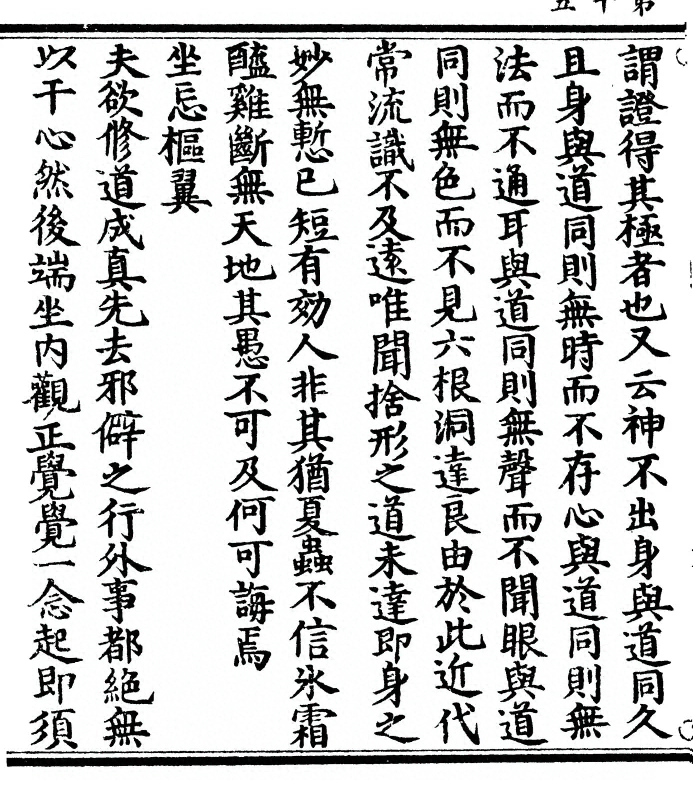 謂證得其極者也又云神不出身與道同久
且身與道同則無時而不存心與道同則無
法而不通耳與道同則無聲而不聞眼與道
同則無色而不見六根洞達良由於此近代
常流識不及遠唯聞捨形之道未達即身之
妙無慙已短有効人非其猶夏蟲不信氷霜
醯雞斷無天地其愚不可及何可誨焉
坐忘樞翼
夫欲修道成真先去邪僻之行外事都絕無
以干心然後端坐內觀正覺覺一念起即須